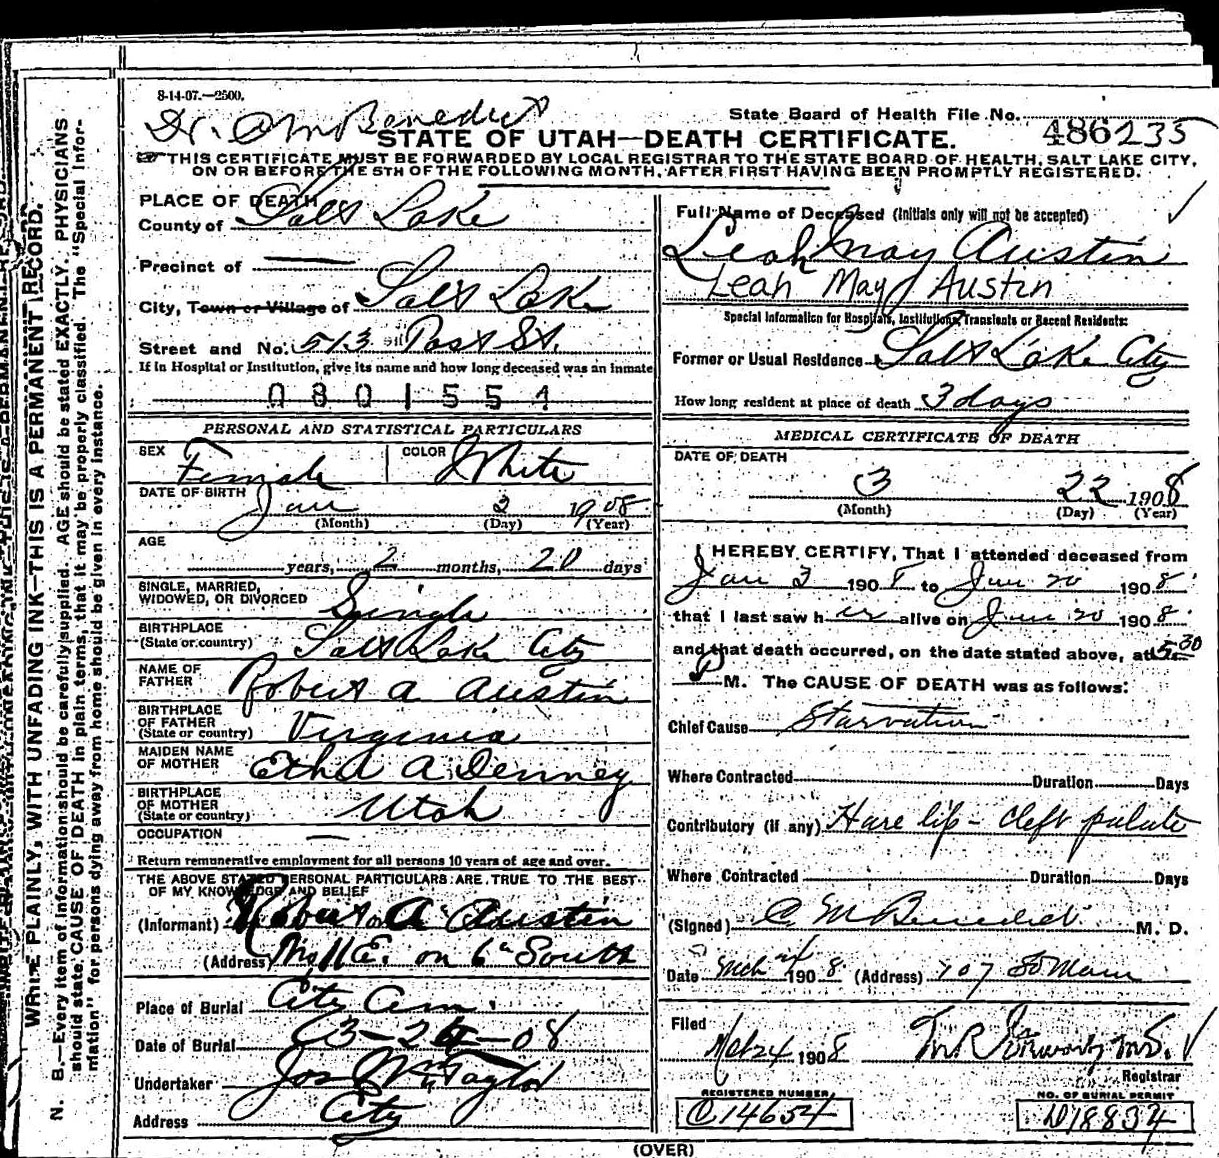 8-14-07.—2500.
Dr. C M Benedict
State Board of Health File No. 486235
STATE OF UTAH—DEATH CERTIFICATE.
THIS CERTIFICATE MUST BE FORWARDED BY LOCAL REGISTRAR TO THE STATE BOARD OF HEALTH, SALT LAKE CITY,
ON OR BEFORE THE 5TH OF THE FOLLOWING MONTH, AFTER FIRST HAVING BEEN PROMPTLY REGISTERED.
PLACE OF DEATH
County of Salt Lake
Precinct of —
City, Town or Village of Salt Lake
Street and No. 513 Post St.
If in Hospital or Institution, give its name and how long deceased was an inmate
0801551
PERSONAL AND STATISTICAL PARTICULARS
SEX Female COLOR White
DATE OF BIRTH Jan 2 1908
(Month) (Day) (Year)
AGE
years, 2 months, 20 days
SINGLE, MARRIED,
WIDOWED, OR DIVORCED Single
BIRTHPLACE
(State or country) Salt Lake City
NAME OF
FATHER Robert A Austin
BIRTHPLACE
OF FATHER
(State or country) Virginia
MAIDEN NAME
OF MOTHER Ethel A Denney
BIRTHPLACE
OF MOTHER
(State or country) Utah
OCCUPATION —
Return remunerative employment for all persons 10 years of age and over.
THE ABOVE STATED PERSONAL PARTICULARS ARE TRUE TO THE BEST
OF MY KNOWLEDGE AND BELIEF
(Informant) Robert A Austin
(Address) E. on 6th South
Place of Burial City Cem.
Date of Burial 3-24-08
Undertaker Jos Wm Taylor
Address City
Full Name of Deceased (Initials only will not be accepted)
Leah May Austin
Leah May Austin
Special Information for Hospitals, Institutions, Transients or Recent Residents:
Former or Usual Residence Salt Lake City
How long resident at place of death 3 days
MEDICAL CERTIFICATE OF DEATH
DATE OF DEATH
3 22 1908
(Month) (Day) (Year)
I HEREBY CERTIFY, That I attended deceased from
Jan 3 1908 to Jan 20 1908
that I last saw her alive on Jan 20 1908
and that death occurred, on the date stated above, at 5:30
P M. The CAUSE OF DEATH was as follows:
Chief Cause Starvation
Where Contracted Duration Days
Contributory (if any) Hare lip - cleft palate
Where Contracted Duration Days
(Signed) C M Benedict M. D.
Date Mch 24 1908 (Address) 707 So Main
Filed
Mch 24 1908
Registrar
REGISTERED NUMBER
C14654
NO. OF BURIAL PERMIT
D18834
(OVER)
WRITE PLAINLY, WITH UNFADING INK—THIS IS A PERMANENT RECORD.
N. B.—Every item of information should be carefully supplied. AGE should be stated EXACTLY. PHYSICIANS
should state CAUSE OF DEATH in plain terms, that it may be properly classified. The "Special Infor-
mation" for persons dying away from home should be given in every instance.